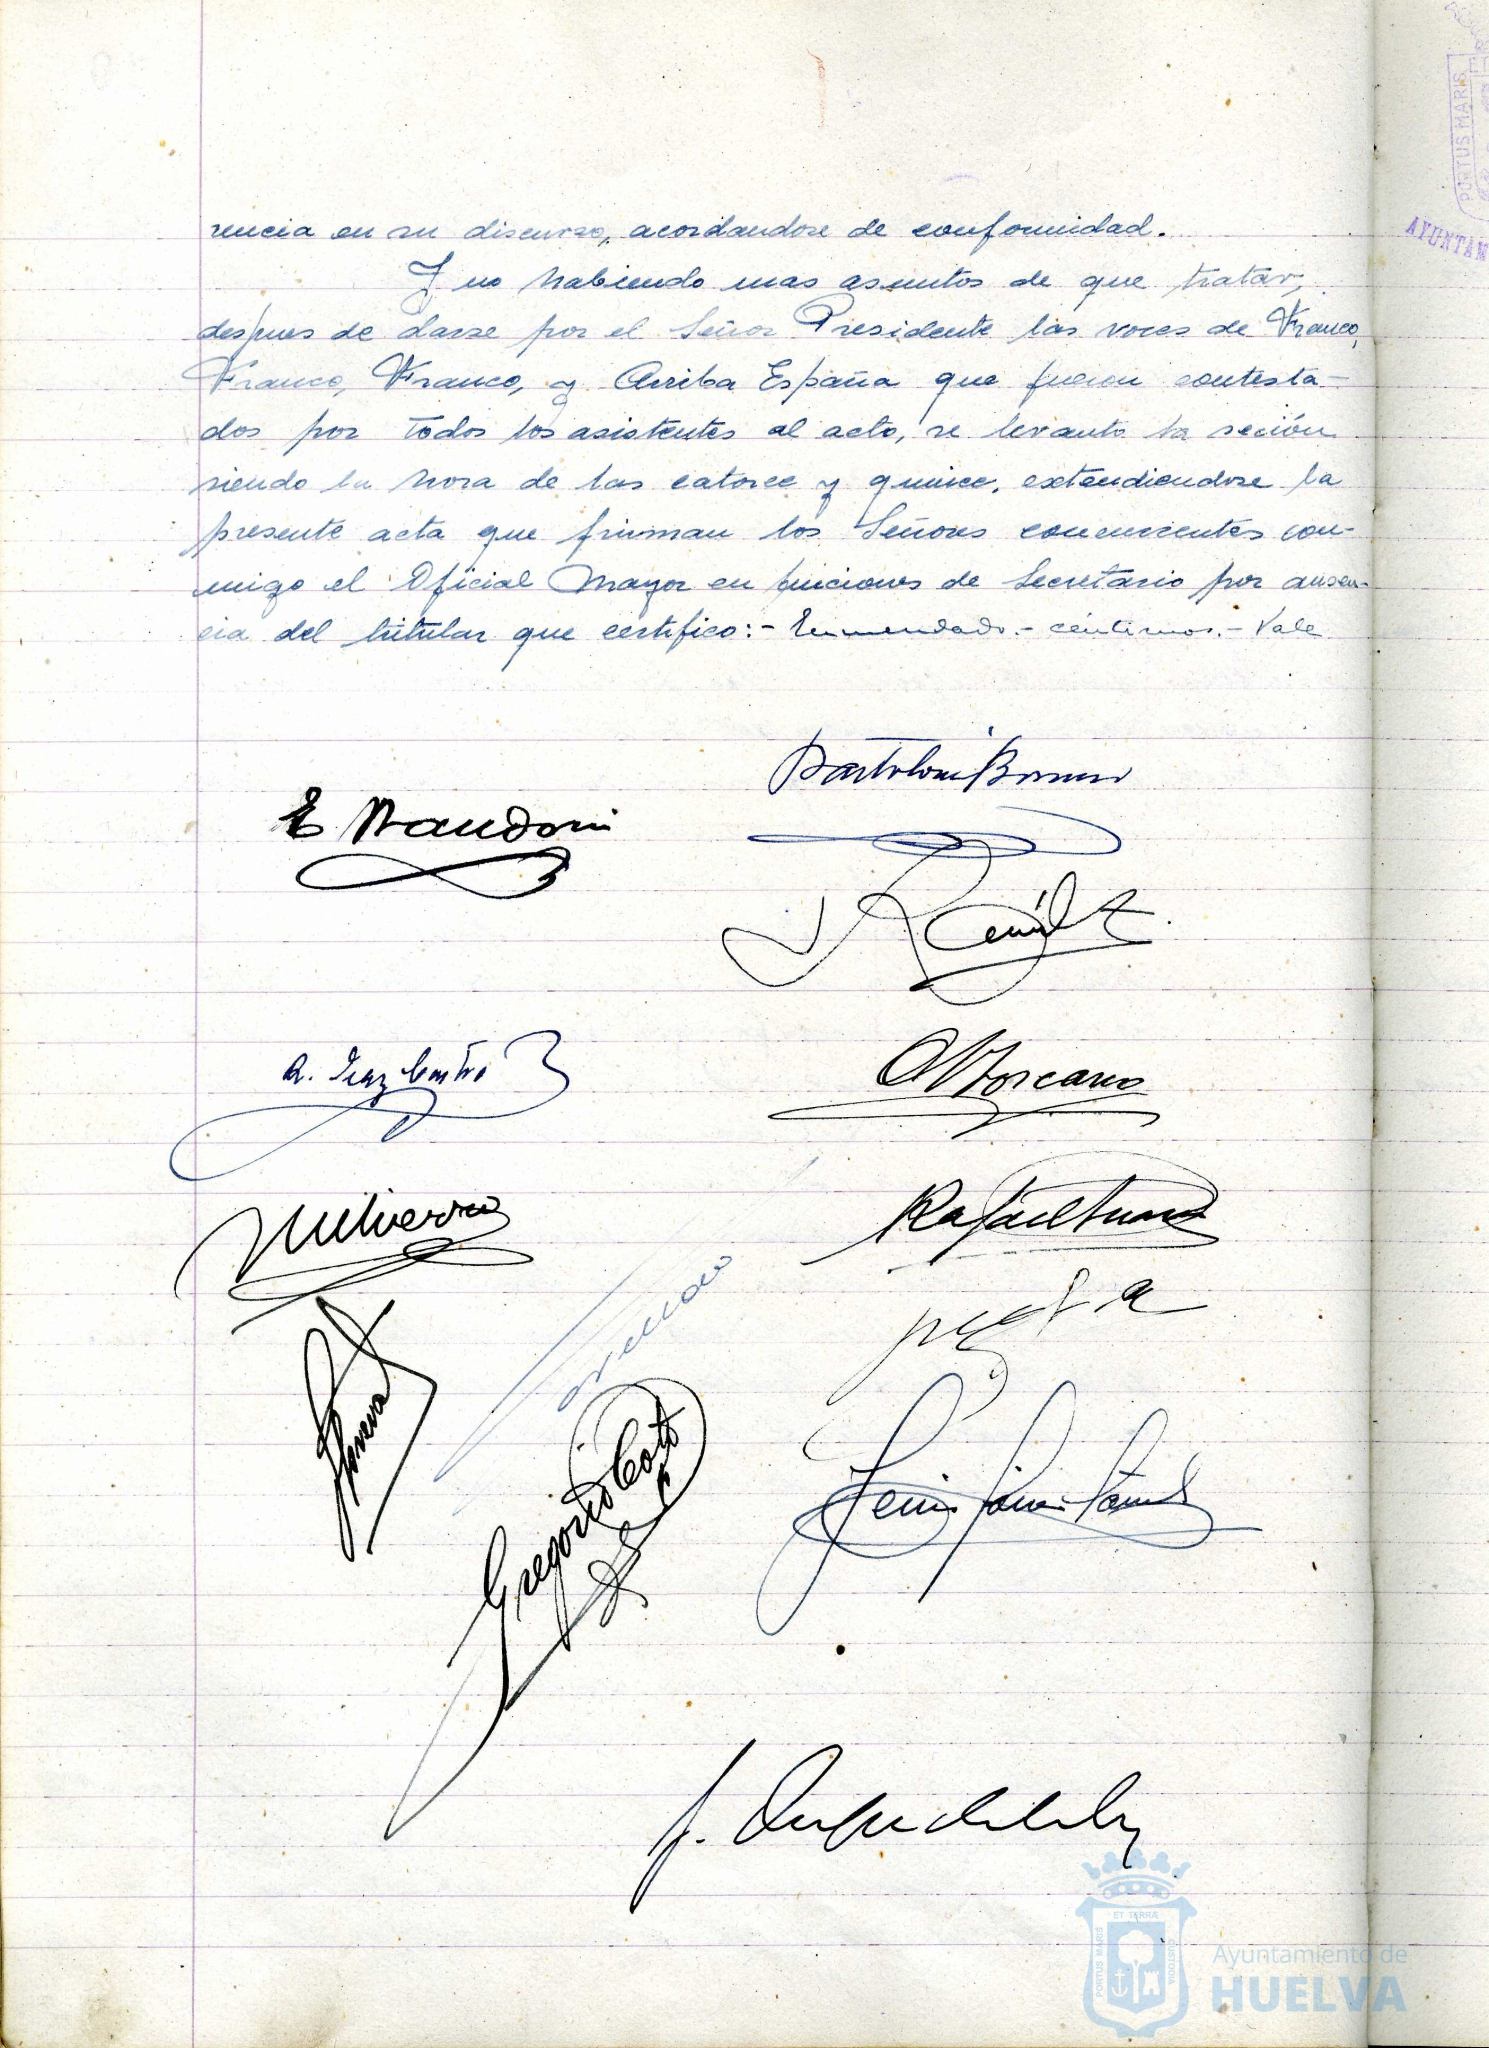 rencia en su discurso, acordandose de conformidad.
Y no habiendo mas asuntos de que tratar,
despues de darse por el Señor Presidente las voces de Franco,
Franco, Franco, y Arriba España que fueron contesta-
dos por todos los asistentes al acto, se levanto la seción
siendo la hora de las catorce y quince, extendiendose la
presente acta que firman los Señores concurrentes con-
migo el Oficial Mayor en funciones de Secretario por ausen-
cia del titular que certifico:- Enmendado.- céntimos.- Vale
E
R. Diaz Castro
Toscano
Rafael
Gregorio Coto
PORTUS MARIS
AYUNTAM
ET TERRÆ
PORTUS MARIS
CUSTODIA
Ayuntamiento de
HUELVA